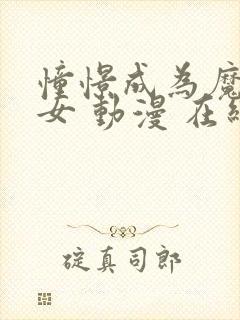 憧憬成為魔
女 動漫 在線
碇真司郎